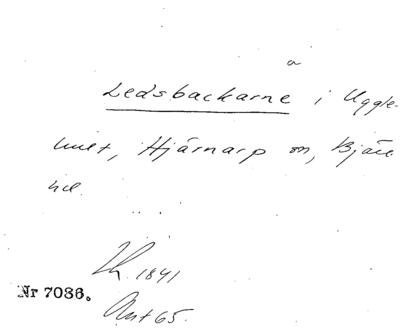 a
Ledsbackarne i Uggle-
hult, Hjärnarp sn, Bjäre
hd.
1841
Nr 7036.
Ant 65.